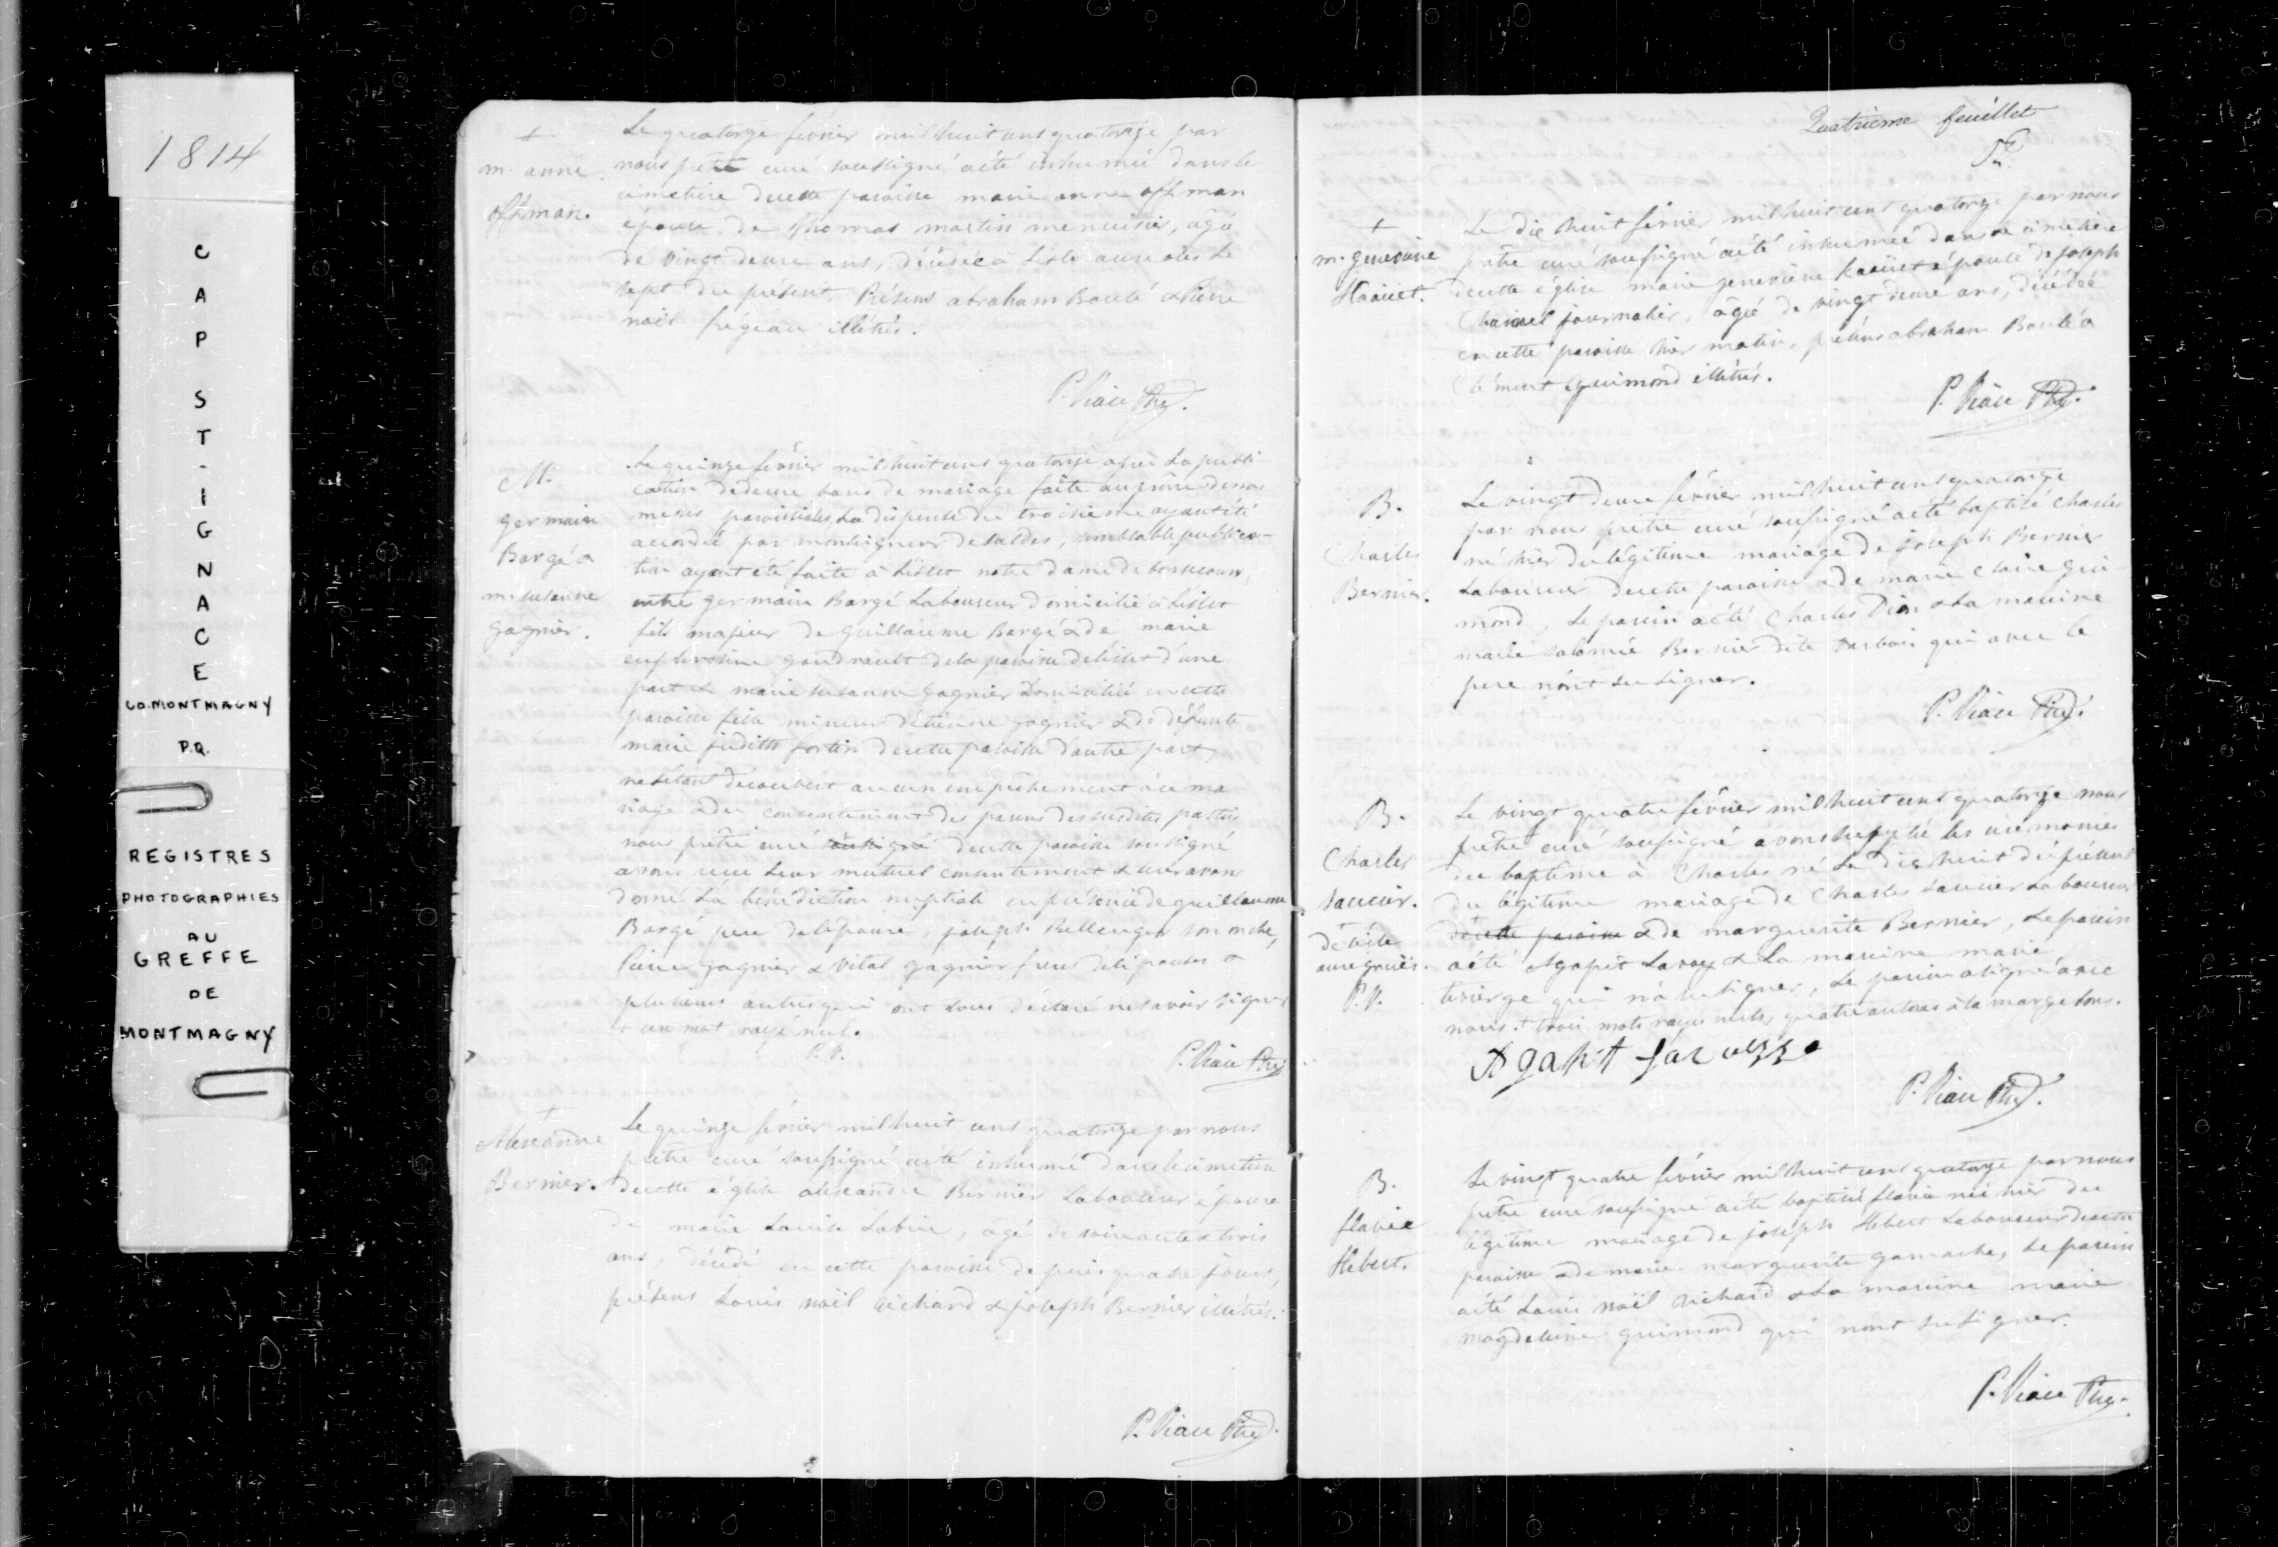 1814
CAP ST-IGNACE
CO. MONTMAGNY
P.Q.
REGISTRES
PHOTOGRAPHIES
AU
GREFFE
DE
MONTMAGNY
+
m. anne
offman.
Le quatorze fevrier mil huit cent quatorze, par
nous prêtre curé soussigné a été inhumée dans le
cimetiere de cette paroisse marie anne offman
épouse de thomas martin menuisier, agée
de vingt deux ans, décédée à l'isle aux oies le
sept du présent. Présens abraham Bouté & Pierre
noël illétrés.
P. Viau Ptre.
M.
germain
Bargé &
m. susanne
gagnier.
Le quinze fevrier mil huit cent quatorze après la publi
cation de deux bans de mariage faite au prone de nos
messes paroissiales, la dispense du troisieme ayant été
accordée par monseigneur de saldes, semblable publica-
tion ayant été faite à l'islet notre dame de bonsecours,
entre germain Bargé Laboureur domicilié à l'islet
fils majeur de guillaume Bargé & de marie
euphrosine gaudreault de la paroisse de l'islet d'une
part & marie susanne gagnier domiciliée en cette
paroisse fille mineure d'etienne gagnier & de défunte
marie judith fortin de cette paroisse d'autre part,
ne s'étant découvert aucun empêchement à ce ma
riage & du consentement des parens des susdites parties
nous prêtre curé soussigné de cette paroisse soussigné
avons reçu leur mutuel consentement & leur avons
donné la bénédiction nuptiale en présence de guillaume
Bargé pere de l'époux, joseph Bellenger son oncle,
Pierre gagnier & vital gagnier freres de l'épouse &
plusieurs autres qui ont tous déclaré ne savoir signer
+ un mot rayé nul.
P. V.
P. Viau Ptre
+
Alexandre
Bernier.
Le quinze fevrier mil huit cent quatorze par nous
prêtre curé soussigné a été inhumé dans le cimetiere
de cette église alexandre Bernier Laboureur époux
de marie Louise , agé de soixante & trois
ans, décédé en cette paroisse depuis quatre jours,
présens Louis noël Richard & joseph Bernier illétrés.
P. Viau Ptre.
Quatrieme feuillet
+
m. genevieve
Haouet.
Le dix huit fevrier mil huit cent quatorze par nous
prêtre curé soussigné a été inhumée dans le cimetiere
de cette église marie genevieve haouet épouse de joseph
journalier, âgée de vingt deux ans, décédée
en cette paroisse hier matin, présens abraham Bouté &
Clément guimond illétrés.
P. Viau Ptre.
B.
Charles
Bernier.
Le vingt deux fevrier mil huit cent quatorze
par nous prêtre curé soussigné a été baptisé charles
né hier du légitime mariage de joseph Bernier
Laboureur de cette paroisse & de marie claire gui
mond, Le parein a été charles Dion & la mareine
marie salomée Bernier dite qui avec le
pere n'ont su signer.
P. Viau Ptre.
B.
Charles
saucier.
+
de l'isle
aux grues.
P. V.
Le vingt quatre fevrier mil huit cent quatorze nous
prêtre curé soussigné avons suppléé les cérémonies
du baptême à Charles né le dix huit du présent
du légitime mariage de charles saucier Laboureur
de cette paroisse & de marguerite Bernier, Le parein
a été Agapit Lavoye & la mareine marie
qui n'a su signer, Le parein a signé avec
nous. + trois mots rayés nuls, quatre autres à la marge bons.
P. Viau Ptre.
B.
flavie
Hebert.
Le vingt quatre fevrier mil huit cent quatorze par nous
prêtre curé soussigné a été baptisée flavie née hier du
légitime mariage de joseph Hebert Laboureur de cette
paroisse & de marie marguerite gamache, Le parein
a été Louis noël Richard & la mareine marie
magdeleine guimond qui n'ont su signer.
P. Viau Ptre.